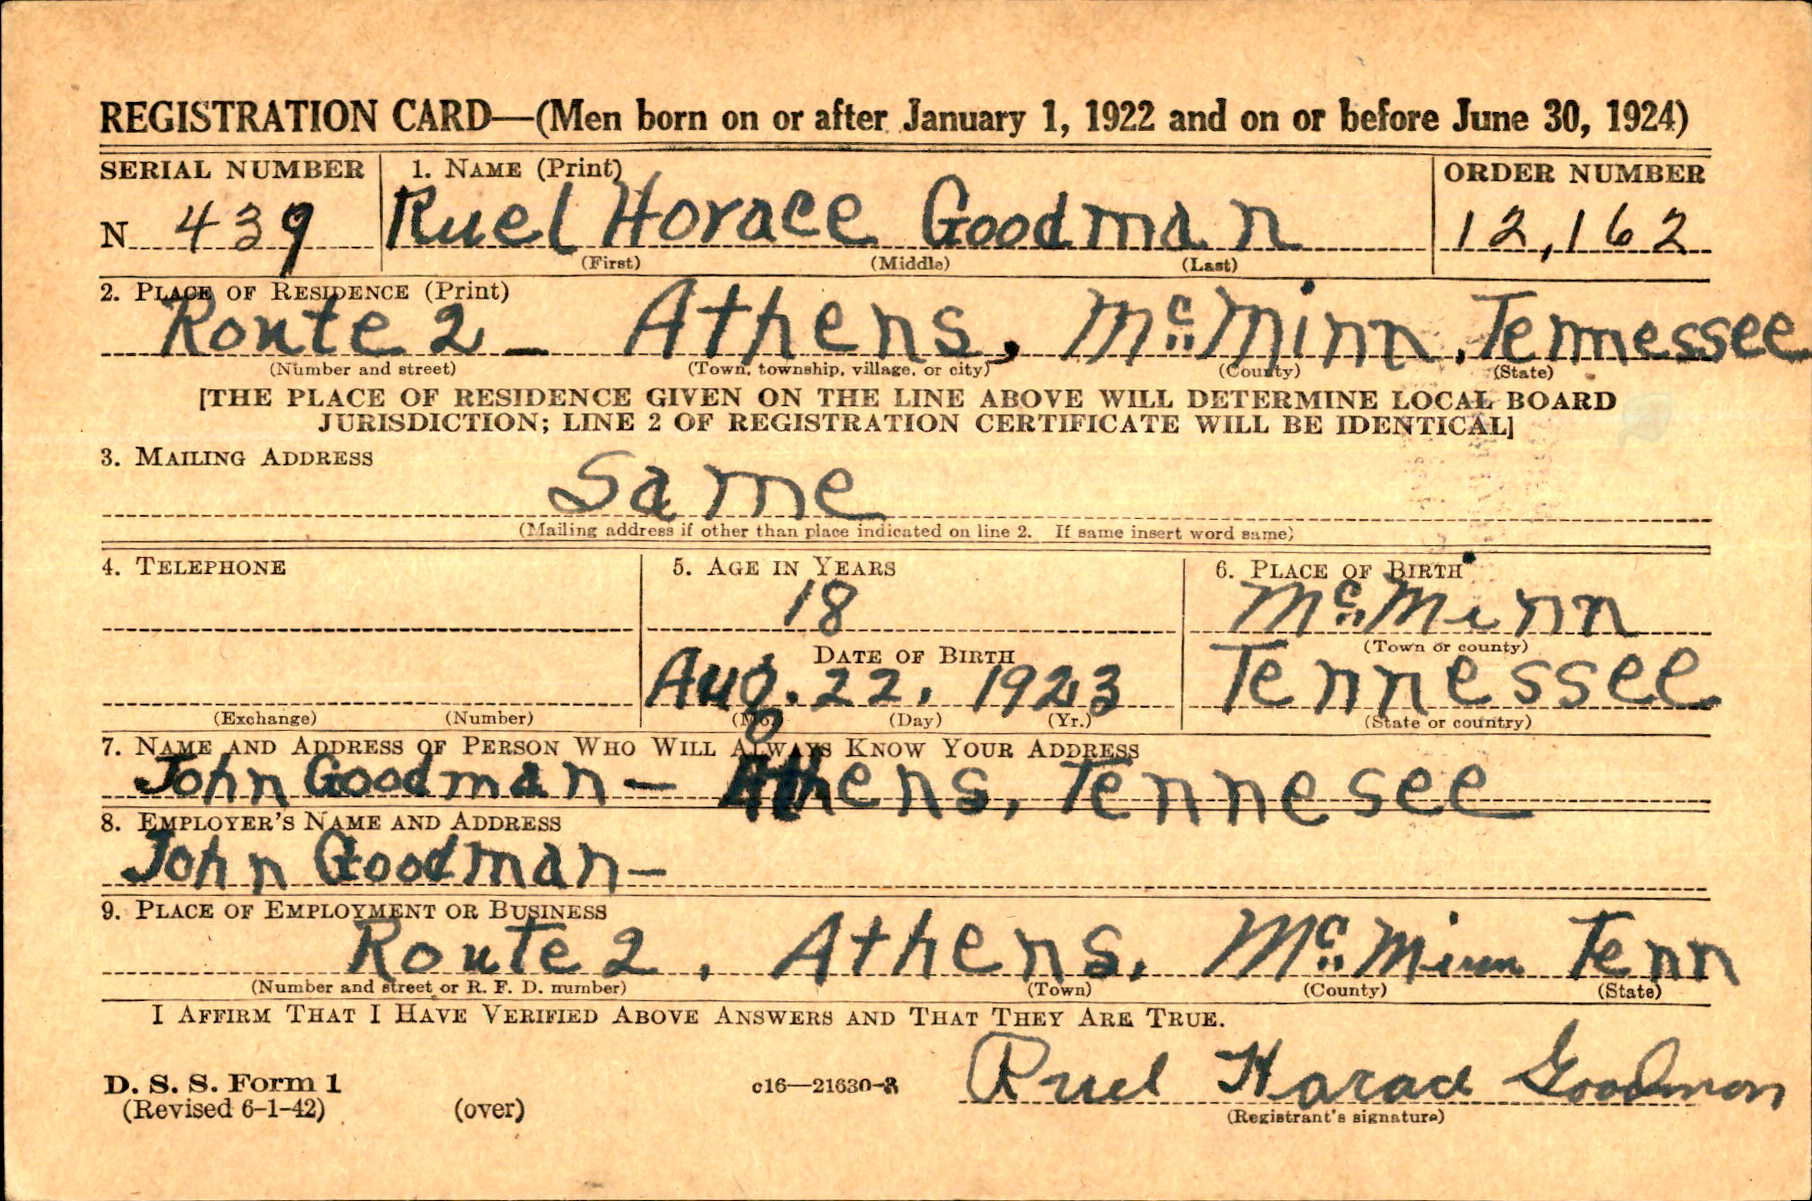 REGISTRATION CARD—(Men born on or after January 1, 1922 and on or before June 30, 1924)
SERIAL NUMBER 1. NAME (Print) ORDER NUMBER
N 439 Ruel Horace Goodman 12,162
(First) (Middle) (Last)
2. PLACE OF RESIDENCE (Print)
Route 2 - Athens, McMinn, Tennessee
(Number and street) (Town, township, village, or city) (County) (State)
[THE PLACE OF RESIDENCE GIVEN ON THE LINE ABOVE WILL DETERMINE LOCAL BOARD
JURISDICTION; LINE 2 OF REGISTRATION CERTIFICATE WILL BE IDENTICAL]
3. MAILING ADDRESS
Same
(Mailing address if other than place indicated on line 2. If same insert word same)
4. TELEPHONE 5. AGE IN YEARS 6. PLACE OF BIRTH
18 McMinn
DATE OF BIRTH (Town or county)
Aug. 22, 1923 Tennessee
(Exchange) (Number) (Mo.) (Day) (Yr.) (State or country)
7. NAME AND ADDRESS OF PERSON WHO WILL ALWAYS KNOW YOUR ADDRESS
John Goodman - Athens, Tennesee
8. EMPLOYER'S NAME AND ADDRESS
John Goodman -
9. PLACE OF EMPLOYMENT OR BUSINESS
Route 2, Athens, McMinn Tenn
(Number and street or R. F. D. number) (Town) (County) (State)
I AFFIRM THAT I HAVE VERIFIED ABOVE ANSWERS AND THAT THEY ARE TRUE.
D. S. S. Form 1 c16—21630-2 Ruel Horace Goodman
(Revised 6-1-42) (over) (Registrant's signature)